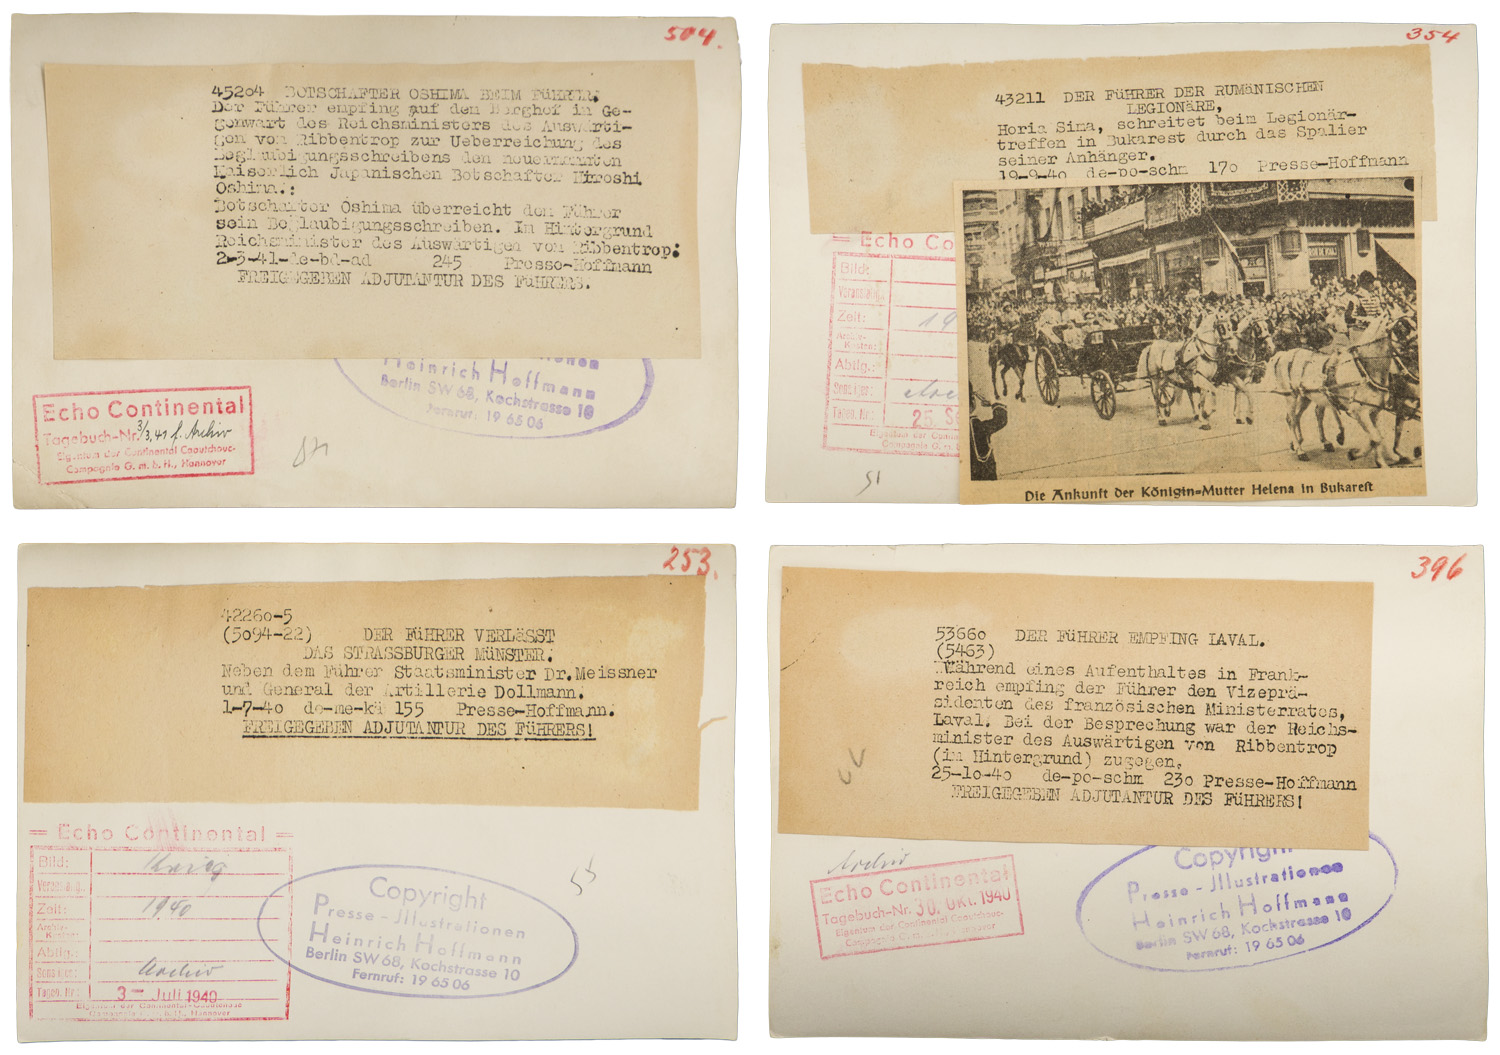 504.
45204 BOTSCHAFTER OSHIMA BEIM FÜHRER.
Der Führer empfing auf dem Berghof in Ge-
genwart des Reichsministers des Auswärti-
gen von Ribbentrop zur Ueberreichung des
Beglaubigungsschreibens den neuernannten
Kaiserlich Japanischen Botschafter Hiroshi
Oshima.:
Botschafter Oshima überreicht dem Führer
sein Beglaubigungsschreiben. Im Hintergrund
Reichsminister des Auswärtigen von Ribbentrop:
2-3-41-de-bd-ad 245 Presse-Hoffmann
FREIGEGEBEN ADJUTANTUR DES FÜHRERS.
Heinrich Hoffmann
Berlin SW 68, Kochstrasse 10
Fernruf: 19 65 06
Echo Continental
Tagebuch-Nr. 3/3.41 f. Archiv
Eigentum der Continental Caoutchouc-
Compagnie G. m. b. H., Hannover
354
43211 DER FÜHRER DER RUMÄNISCHEN
LEGIONÄRE,
Horia Sima, schreitet beim Legionär-
treffen in Bukarest durch das Spalier
seiner Anhänger.
19-9-40 de-po-schm 170 Presse-Hoffmann
= Echo Co
Bild:
Zeit: 19
Abtlg.:
Sonstiges:
Tageb. Nr.: 25. S
Eigentum der Cont
Compagnie G. m
51
Die Ankunft der Königin-Mutter Helena in Bukarest
253.
42260-5
(5094-22) DER FÜHRER VERLÄSST
DAS STRASSBURGER MÜNSTER.
Neben dem Führer Staatsminister Dr. Meissner
und General der Artillerie Dollmann.
1-7-40 de-me-kä 155 Presse-Hoffmann.
FREIGEGEBEN ADJUTANTUR DES FÜHRERS!
= Echo Continental =
Bild: Krieg
Zeit: 1940
Abtlg.:
Sonstiges: Archiv
Tageb. Nr.: 3- Juli 1940
Eigentum der Continental-Caoutchouc
Compagnie G. m. b. H., Hannover
Copyright
Presse-Illustrationen
Heinrich Hoffmann
Berlin SW 68, Kochstrasse 10
Fernruf: 19 65 06
396
53660 DER FÜHRER EMPFING LAVAL.
(5463)
Während eines Aufenthaltes in Frank-
reich empfing der Führer den Vizeprä-
sidenten des französischen Ministerrates,
Laval. Bei der Besprechung war der Reichs-
minister des Auswärtigen von Ribbentrop
(im Hintergrund) zugegen.
25-10-40 de-po-schm 230 Presse-Hoffmann
FREIGEGEBEN ADJUTANTUR DES FÜHRERS!
Archiv
Echo Continental
Tagebuch-Nr. 30. Okt. 1940
Eigentum der Continental Caoutchouc-
Compagnie G. m. b. H., Hannover
Copyright
Presse-Illustrationen
Heinrich Hoffmann
Berlin SW 68, Kochstrasse 10
Fernruf: 19 65 06